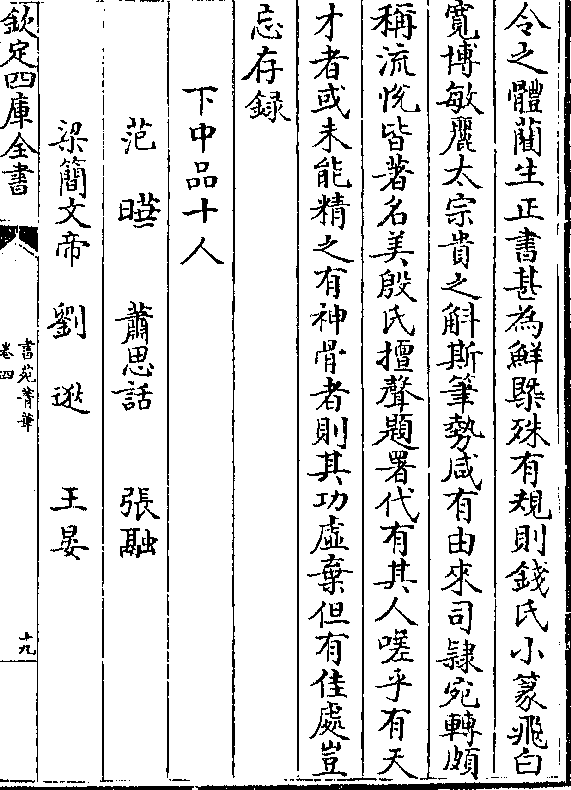 令之體藺生正書甚為鮮緊殊有規則錢氏小篆飛白
寛博敏麗太宗貴之斛斯筆勢咸有由來司隸宛轉頗
稱流恱皆著名美殷氏擅聲題署代有其人嗟乎有天
才者或未能精之有神骨者則其功虚棄但有佳處豈
忘存録
下中品十人
范曄 蕭思話 張融
梁簡文帝 劉逖 王晏
欽定四庫全書
書苑菁華
卷四
十九